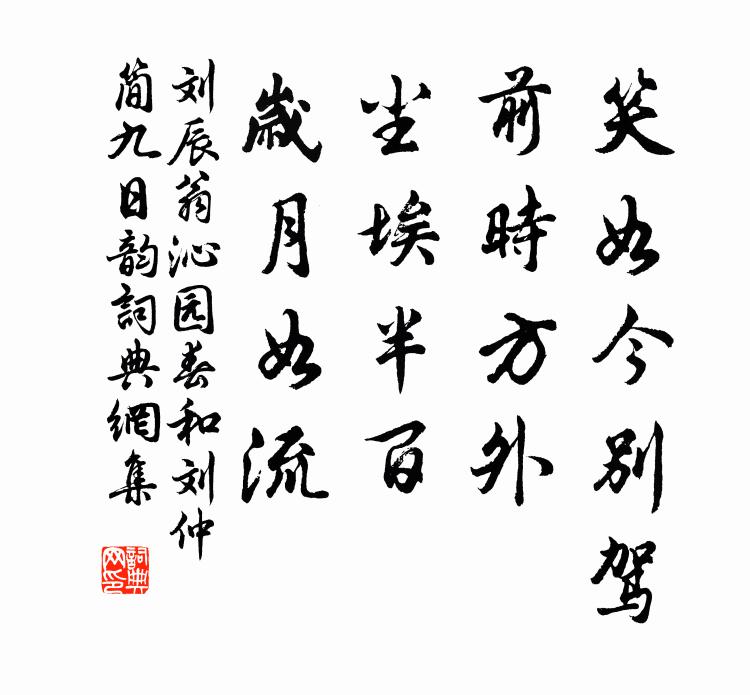 笑如今别駕
前時方外
尘埃半百
歲月如流
刘辰翁沁园春和刘仲
简九日韵詞典網集
詞典
网印